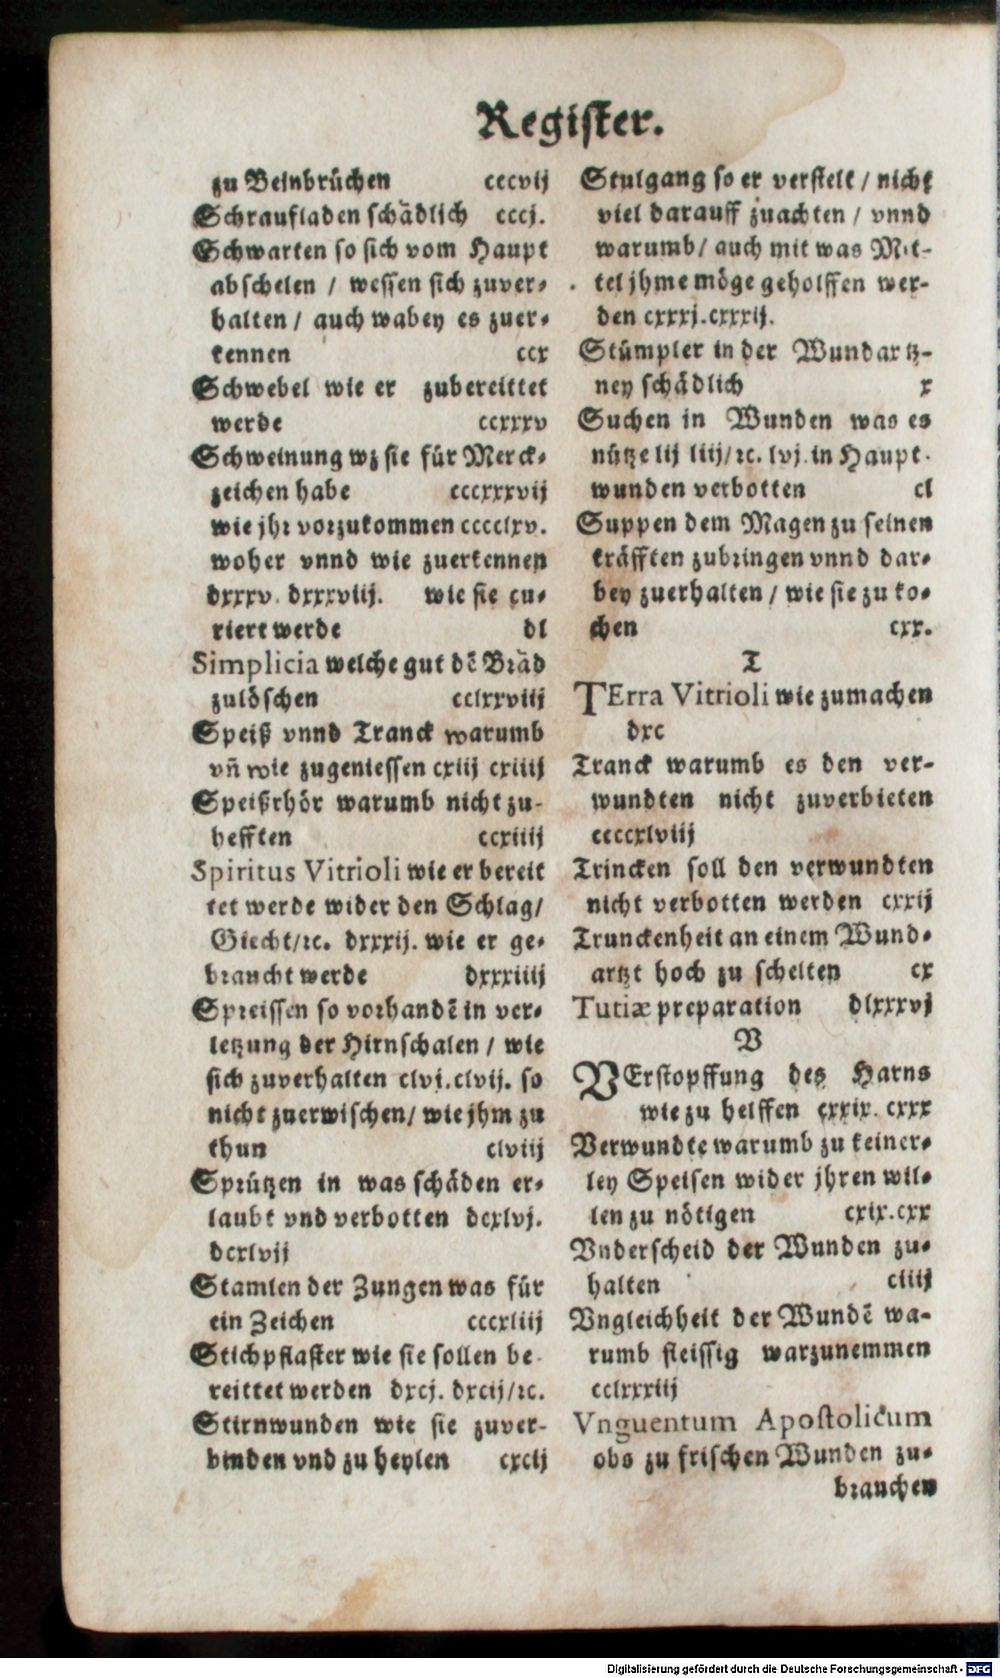 Register.
zu Beinbrüchen cccvij
Schraufladen schädlich cccj.
Schwarten so sich vom Haupt
abschelen / wessen sich zuver-
halten / auch wabey es zuer-
kennen ccx
Schwebel wie er zubereittet
werde ccxxxv
Schweinung wz sie für Merck-
zeichen habe cccxxxvij
wie jhr vorzukommen cccclxv.
woher vnnd wie zuerkennen
dxxxv. dxxxviij. wie sie cu-
riert werde dl
Simplicia welche gut dē Bräd
zulöschen cclxxviij
Speiß vnnd Tranck warumb
vñ wie zugeniessen cxiij cxiiij
Speißrhör warumb nicht zu-
hefften ccxiiij
Spiritus Vitrioli wie er bereit
tet werde wider den Schlag/
Giecht/ꝛc. dxxxij. wie er ge-
braucht werde dxxxiiij
Spreissen so vorhandē in ver-
letzung der Hirnschalen / wie
sich zuverhalten clvj. clvij. so
nicht zuerwischen/ wie jhm zu
thun clviij
Sprützen in was schäden er-
laubt vnd verbotten dcxlvj.
dcxlvij
Stamlen der Zungen was für
ein Zeichen cccxliij
Stichpflaster wie sie sollen be
reittet werden dxcj. dxcij/ꝛc.
Stirnwunden wie sie zuver-
binden vnd zu heylen cxcij
Stulgang so er verstelt / nicht
viel darauff zuachten / vnnd
warumb/ auch mit was Mit-
tel jhme möge geholffen wer-
den cxxxj. cxxxij.
Stümpler in der Wundartz-
ney schädlich x
Suchen in Wunden was es
nütze lij liij/ꝛc. lvj. in Haupt-
wunden verbotten cl
Suppen dem Magen zu seinen
kräfften zubringen vnnd dar-
bey zuerhalten / wie sie zu ko-
chen cxx.
T
TErra Vitrioli wie zumachen
dxc
Tranck warumb es den ver-
wundten nicht zuverbieten
ccccxlviij
Trincken soll den verwundten
nicht verbotten werden cxxij
Trunckenheit an einem Wund-
artzt hoch zu schelten cx
Tutiæ preparation dlxxxvj
V
VErstopffung des Harns
wie zu helffen cxxix. cxxx
Verwundte warumb zu keiner-
ley Speisen wider jhren wil-
len zu nötigen cxix. cxx
Vnderscheid der Wunden zu-
halten ciiij
Vngleichheit der Wundē wa-
rumb fleissig warzunemmen
cclxxxiij
Vnguentum Apostolicum
obs zu frischen Wunden zu-
brauchen
Digitalisierung gefördert durch die Deutsche Forschungsgemeinschaft - DFG